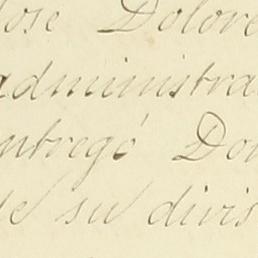 Jose Dolore
administra
entregó Do
de su divis